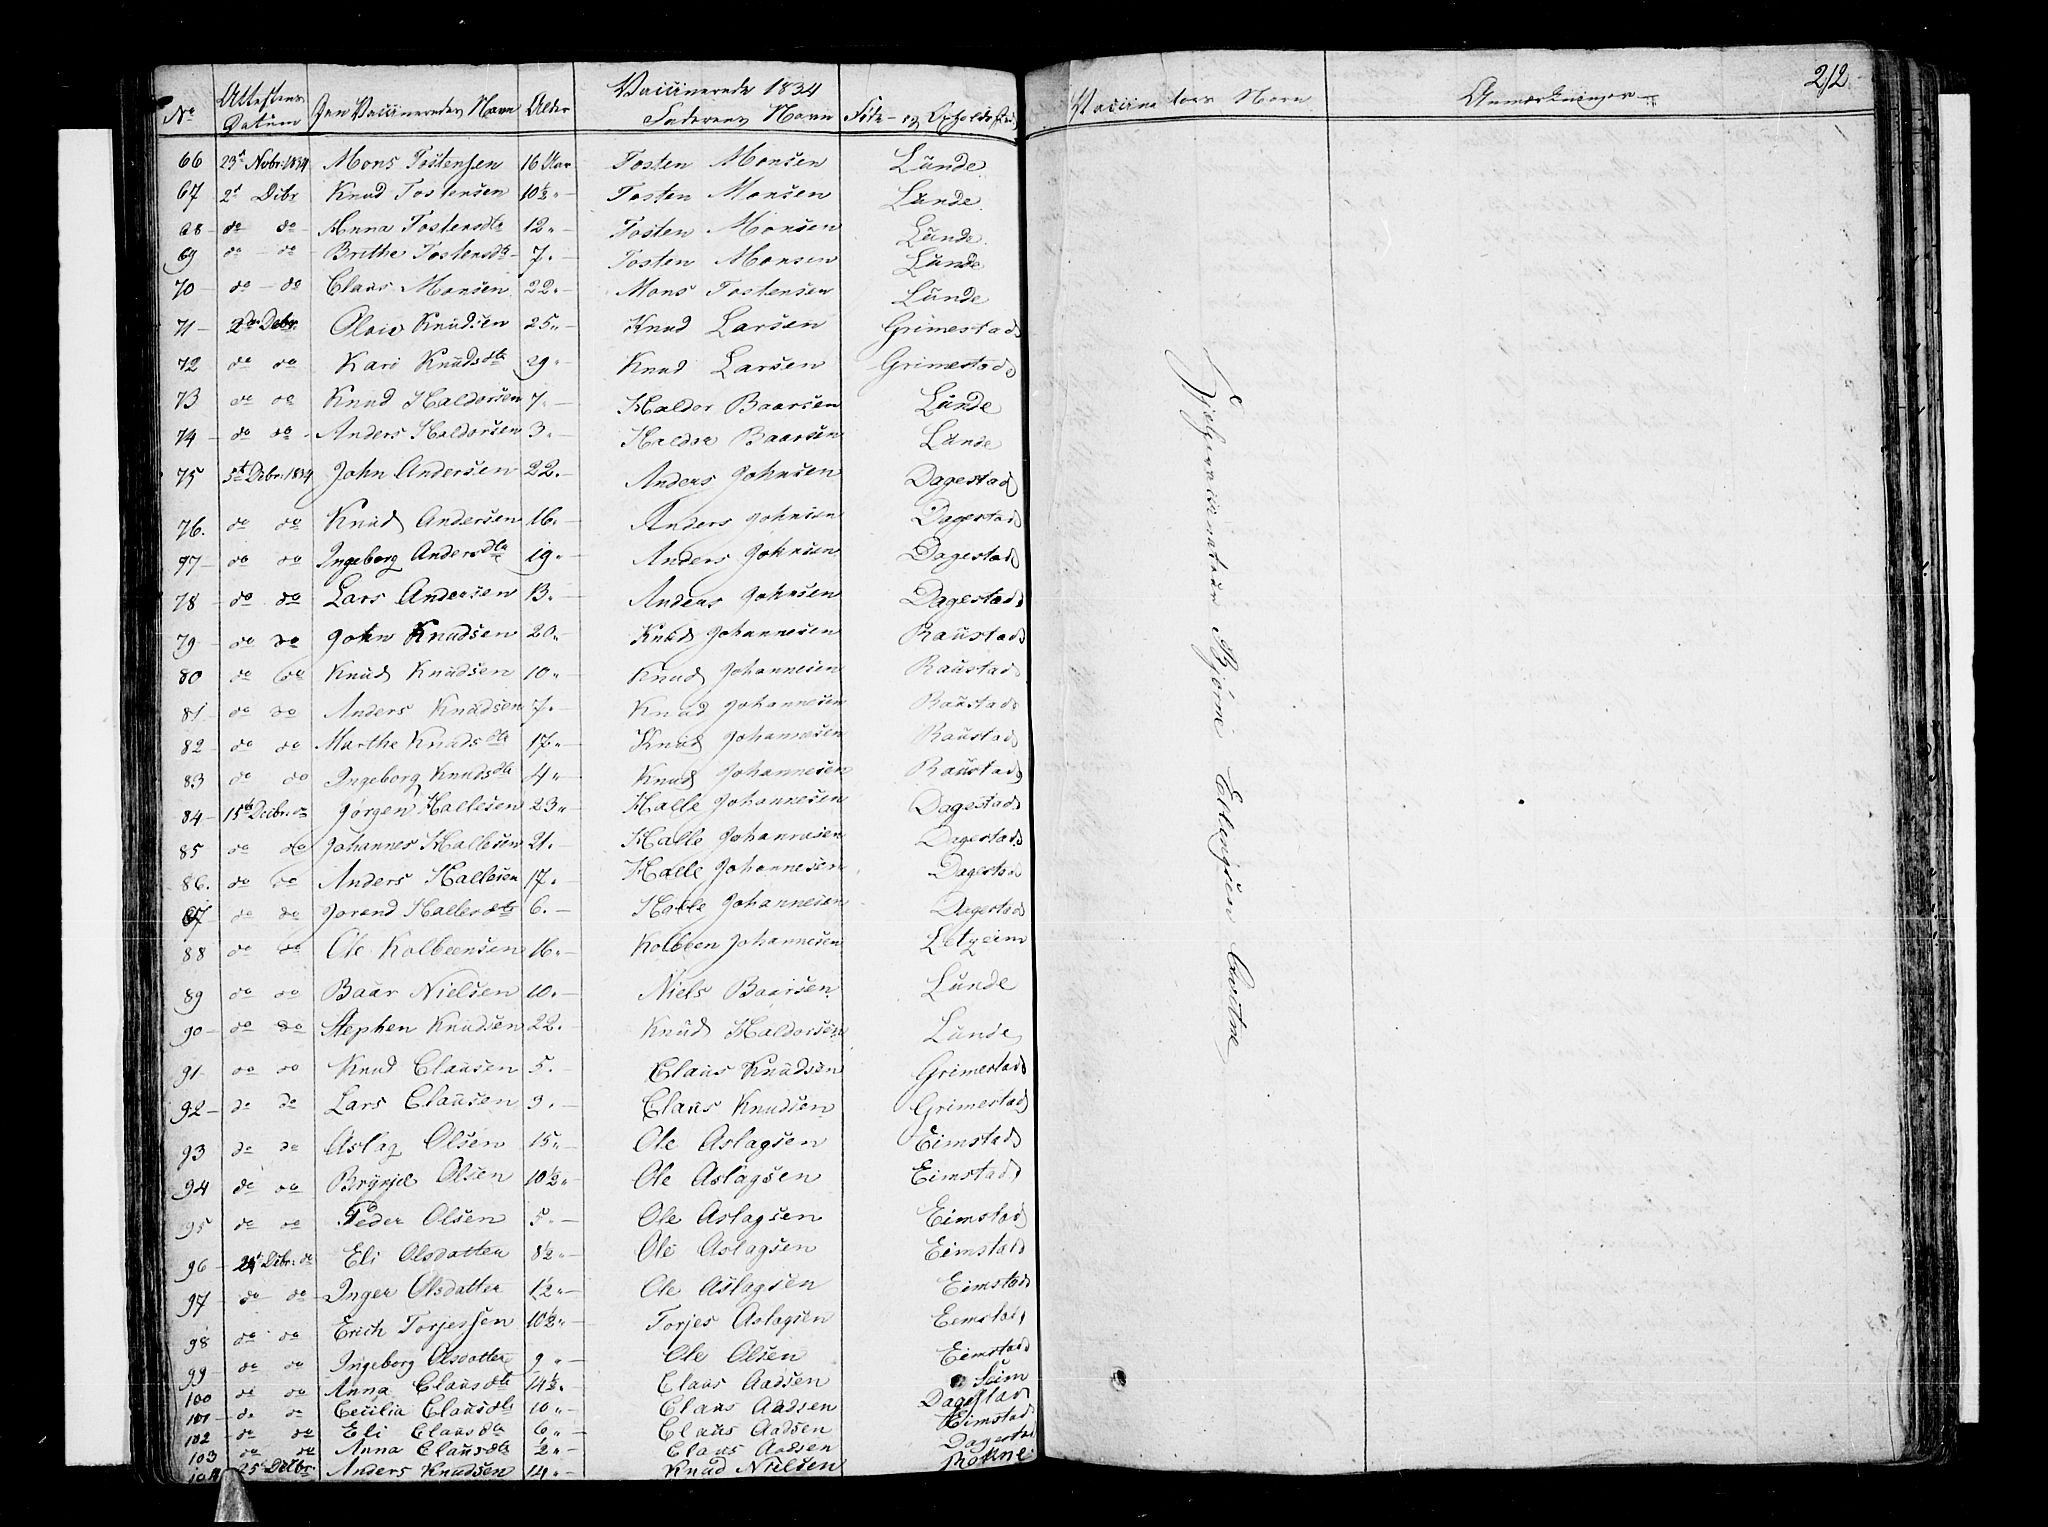 Vaccinerede 1834
No Attestens Datum Den Vaccineredes Navn Alder Faderens Navn Føde- og Opholdssted
66 23d Novbr: 1834 Mons Tostensen 16 Aar Tosten Monsen Lunde
67 2d Debr Knud Tostensen 10½ „ – Tosten Monsen Lunde
68 – do do Anna Tostensdtr 12 „ – Tosten Monsen Lunde
69 do – do Brithe Tostensdtr 7 „ – Tosten Monsen Lunde
70 – do – do Claus Monsen 22 „ – Mons Tostensen Lunde
71 – 2den Debr Olaie Knudsen 25 „ – Knud Larsen Grimestad
72 do do Kari Knudsdtr 29 „ – Knud Larsen Grimestad
73 do do Knud Haldorsen 7 „ – Haldor Baarsen Lunde
74 – do do Anders Haldorsen 3 „ – Haldor Baarsen Lunde
75 5te Debr: 1834 John Andersen 22 „ – Anders Johnsen Dagestad
76. do do Knud Andersen 16 „ – Anders Johnsen Dagestad
77 – do do Ingeborg Andersdtr 19 „ – Anders Johnsen Dagestad
78 – do do Lars Andersen 13 „ – Anders Johnsen Dagestad
79 – do do John Knudsen 20 „ – Knud Johannesen Raustad
80 do do Knud Knudsen 10 „ – Knud Johannesen Raustad
81 do do Anders Knudsen 7 „ – Knud Johannesen Raustad
82 – do do Marthe Knudsdtr 17 „ – Knud Johannesen Raustad
83 do do Ingeborg Knudsdtr 4 „ – Knud Johannesen Raustad
84 – 15de Debr: do Jørgen Hallesen 23 „ – Halle Johannesen Dagestad
85 do do Johannes Hallesen 21 „ – Halle Johannesen Dagestad
86. do do Anders Hallesen 17 „ – Halle Johannesen Dagestad
87 do do Jorend Hallesdtr 6 „ – Halle Johannesen Dagestad
88 do do Ole Kolbeensen 16 „ – Kolbeen Johannesen
89 do do Baar Nielsen 10 „ – Niels Baarsen Lunde
90 – do do Stephen Knudsen 22 „ – Knud Haldorsen Lunde
91 do do Knud Clausen 5 „ – Claus Knudsen Grimestad
92 – do do Lars Clausen 9 „ – Claus Knudsen Grimestad
93 do do Aslag Olsen 15 „ – Ole Aslagsen Eimstad
94 do do Brynjel Olsen 10½ „ Ole Aslagsen Eimstad
95 do do Peder Olsen 5 „ – Ole Aslagsen Eimstad
96 – 21d Debr: do Eli Olsdatter 8½ „ – Ole Aslagsen Eimstad
97 – do – do Inger Olsdatter 1½ „ – Ole Aslagsen Eimstad
98 do do Erich Torjessen 10½ „ Torjes Aslagsen Eemstad
99 – do do Ingeborg Olsdatter 9 „ – Ole Olsen Eimstad
100 do do Anna Clausdtr 14½ „ Claus Aadsen Seim
101 – do do Cecilia Clausdtr 10 „ Claus Aadsen Dagestad
102 – do do Eli Clausdtr 6 „ – Claus Aadsen Eimstad
103 do do Anna Clausdtr ½ „ – Claus Aadsen Dagestad
104 25d Debr Anders Knudsen 14 „ – Knud Nielsen Rokne
212
Vaccinateurs Navn Anmærkninger
Hjelpevaccinateur Bjørne Ellingsen